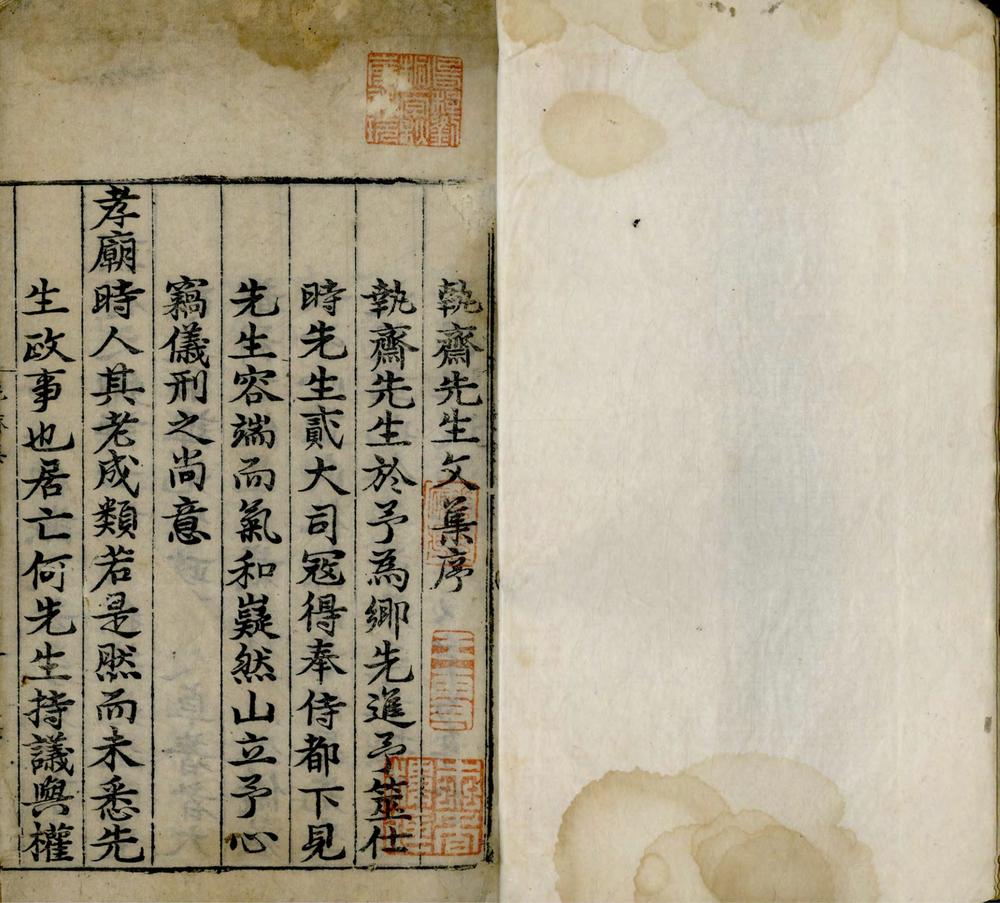 執齋先生文集序
執齋先生於予為鄉先進予筮仕
時先生貳大司冦得奉侍都下見
先生容端而氣和嶷然山立予心
竊儀刑之尚意
孝廟時人其老成類若是然而未悉先
生政事也居亡何先生持議與權